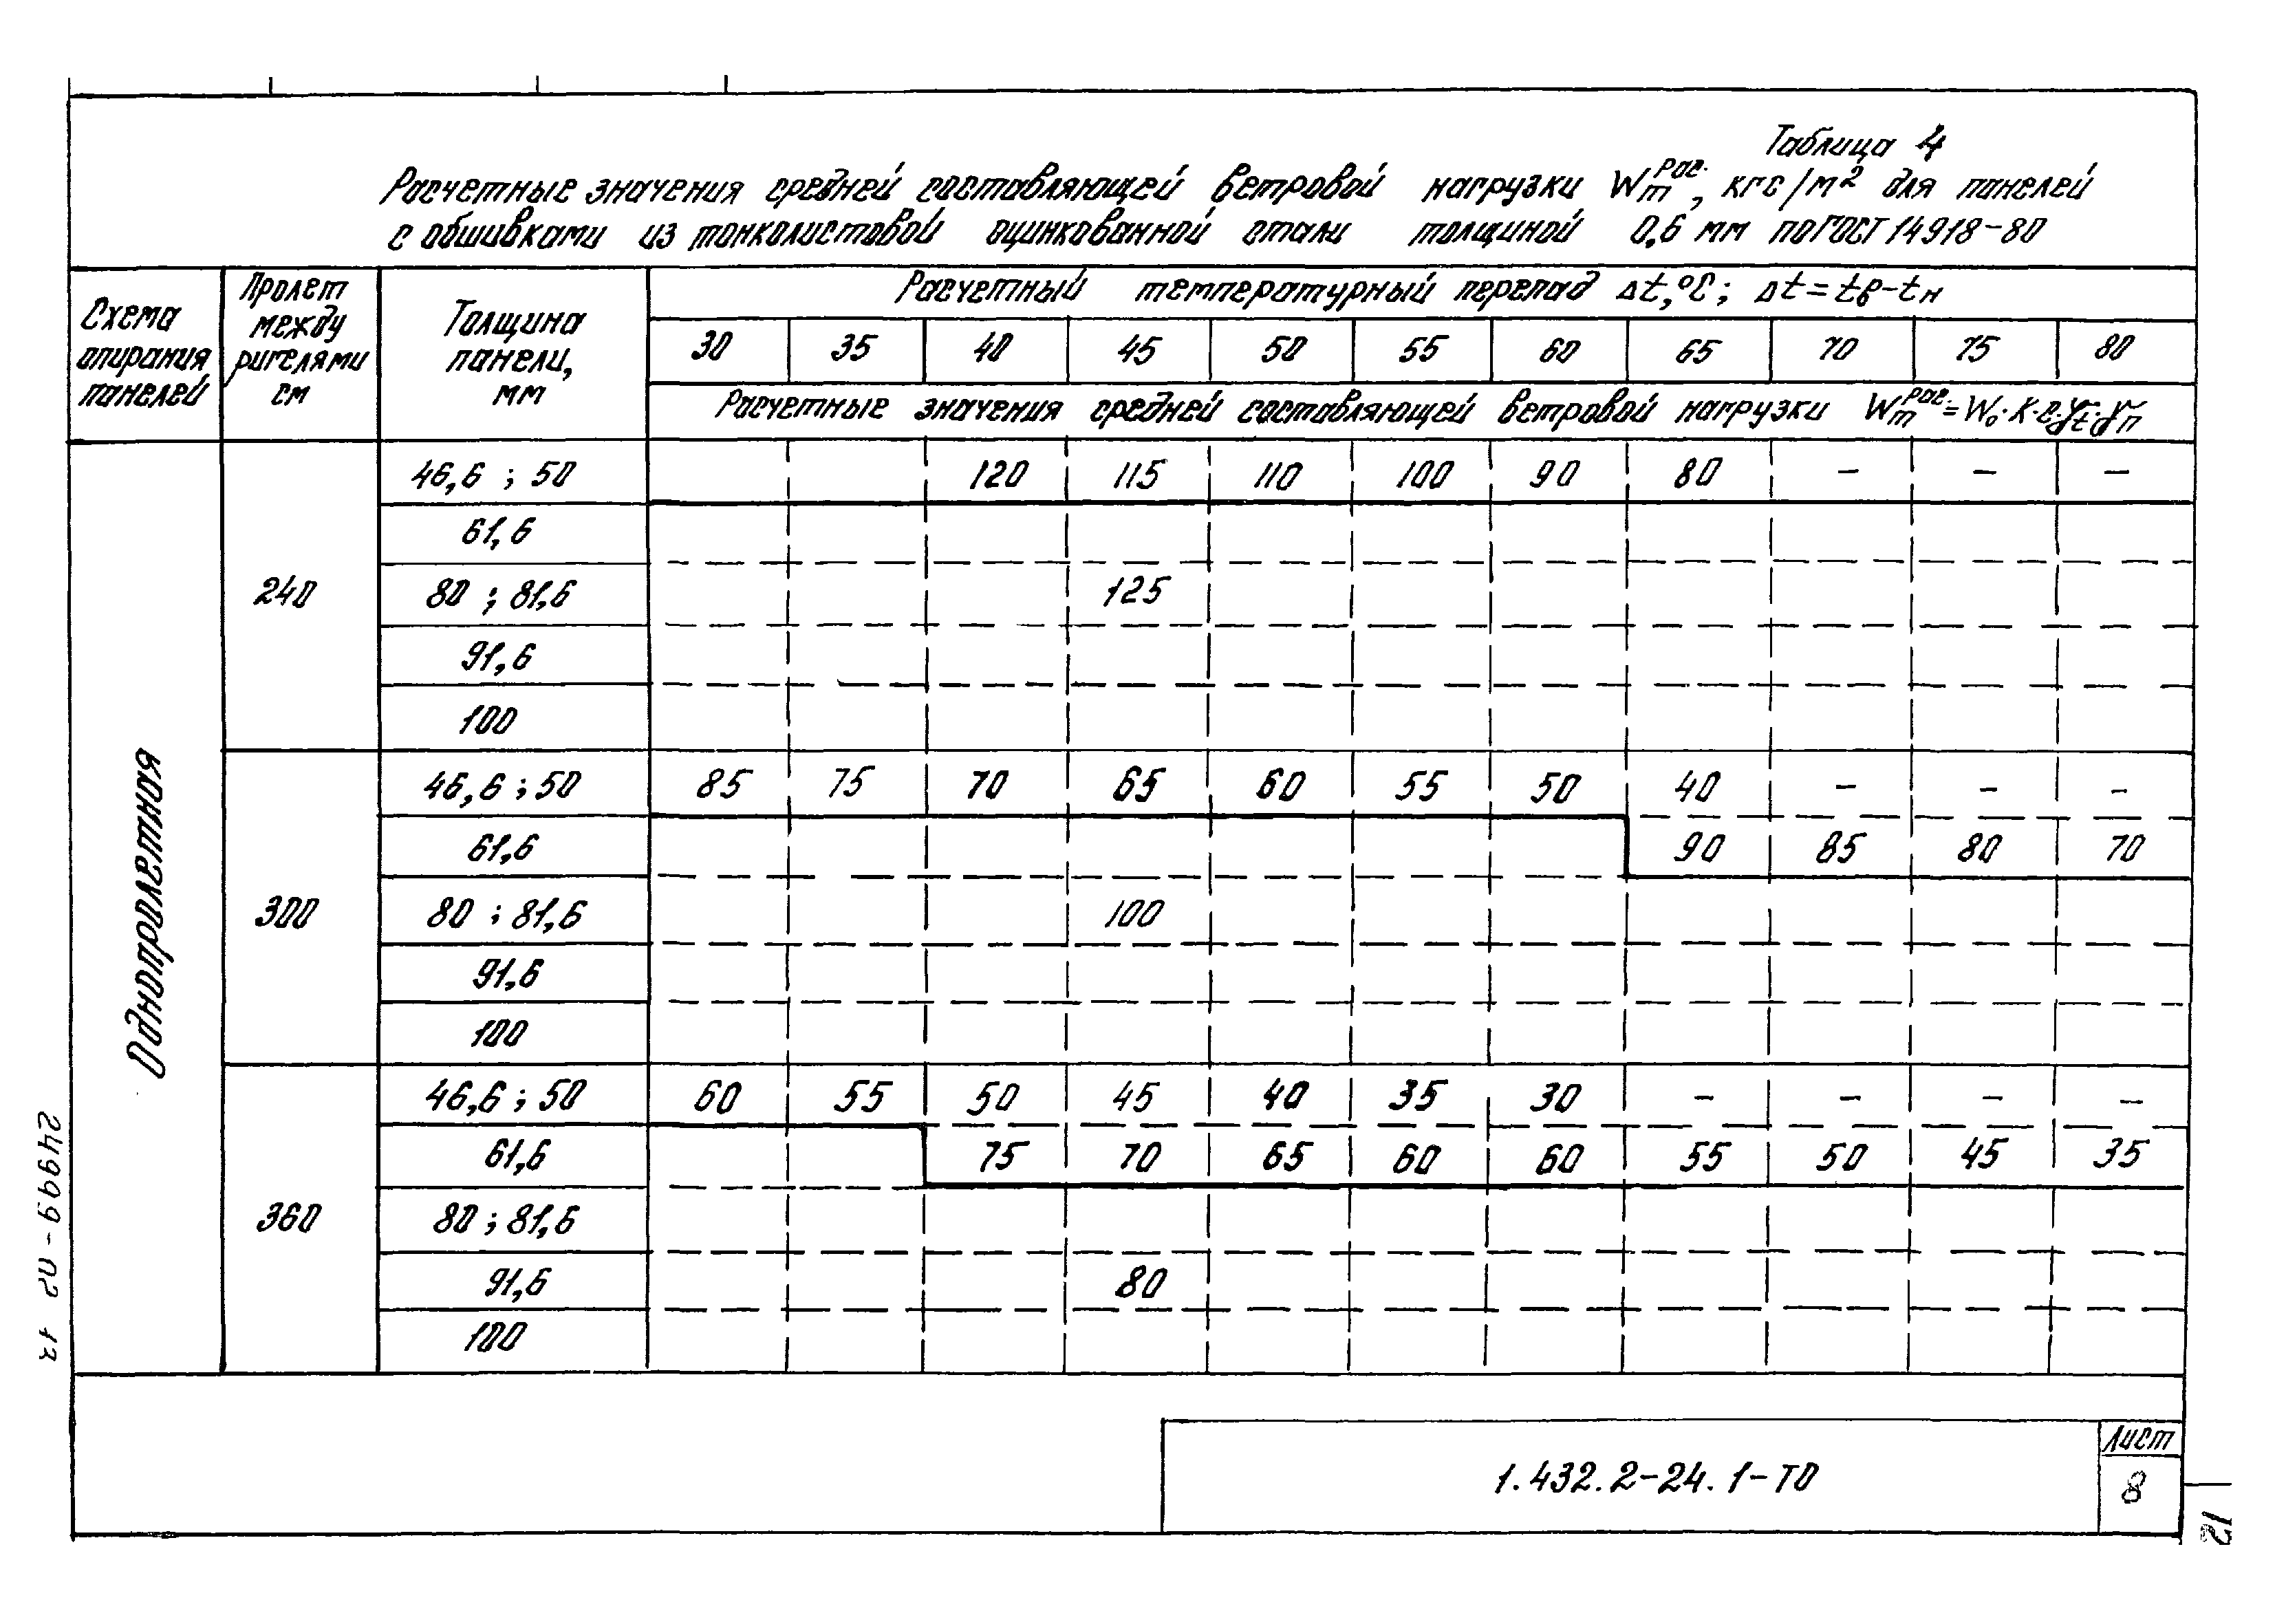 Таблица 4
Расчетные значения средней составляющей ветровой нагрузки Wm рас., кгс/м² для панелей
с обшивками из тонколистовой оцинкованной стали толщиной 0,6 мм по ГОСТ 14918-80
Схема опирания панелей
Пролет между ригелями см
Толщина панели, мм
Расчетный температурный перепад Δt,°С; Δt=tв-tн
30 35 40 45 50 55 60 65 70 75 80
Расчетные значения средней составляющей ветровой нагрузки Wm рас.=Wo·K·c·γt·γn
Однопролетная
240
46,6 ; 50 120 115 110 100 90 80 – – –
61,6
80 ; 81,6 125
91,6
100
300
46,6 ; 50 85 75 70 65 60 55 50 40 – – –
61,6 90 85 80 70
80 ; 81,6 100
91,6
100
360
46,6 ; 50 60 55 50 45 40 35 30 – – – –
61,6 75 70 65 60 60 55 50 45 35
80 ; 81,6
91,6 80
100
1.432.2-24.1-ТО
Лист
8
24999-02 13
12